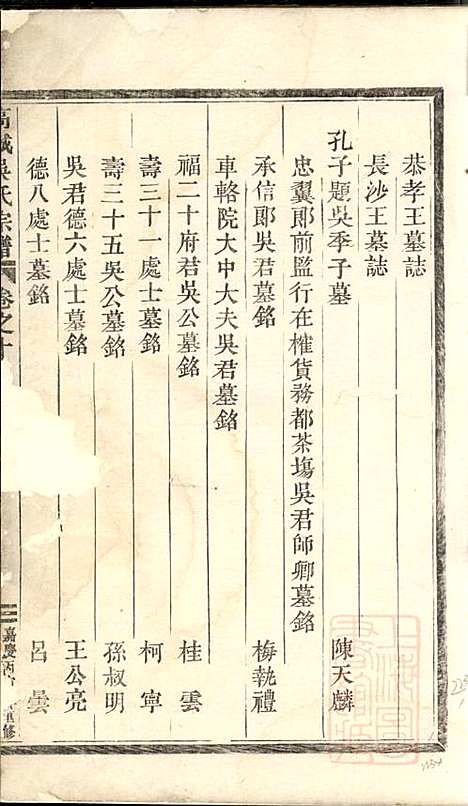 恭孝王墓誌
長沙王墓誌
孔子題吳季子墓
忠翼郎前監行在榷貨務都茶塲吳君師卿墓銘 陳天麟
承信郎吳君墓銘 梅執禮
車輅院大中大夫吳君墓銘
福二十府君吳公墓銘 桂雲
壽三十一處士墓銘 柯寧
壽三十五吳公墓銘 孫叔明
吳君德六處士墓銘 王公亮
德八處士墓銘 呂曇
高城吳氏宗譜 卷之十 嘉慶丙 重修